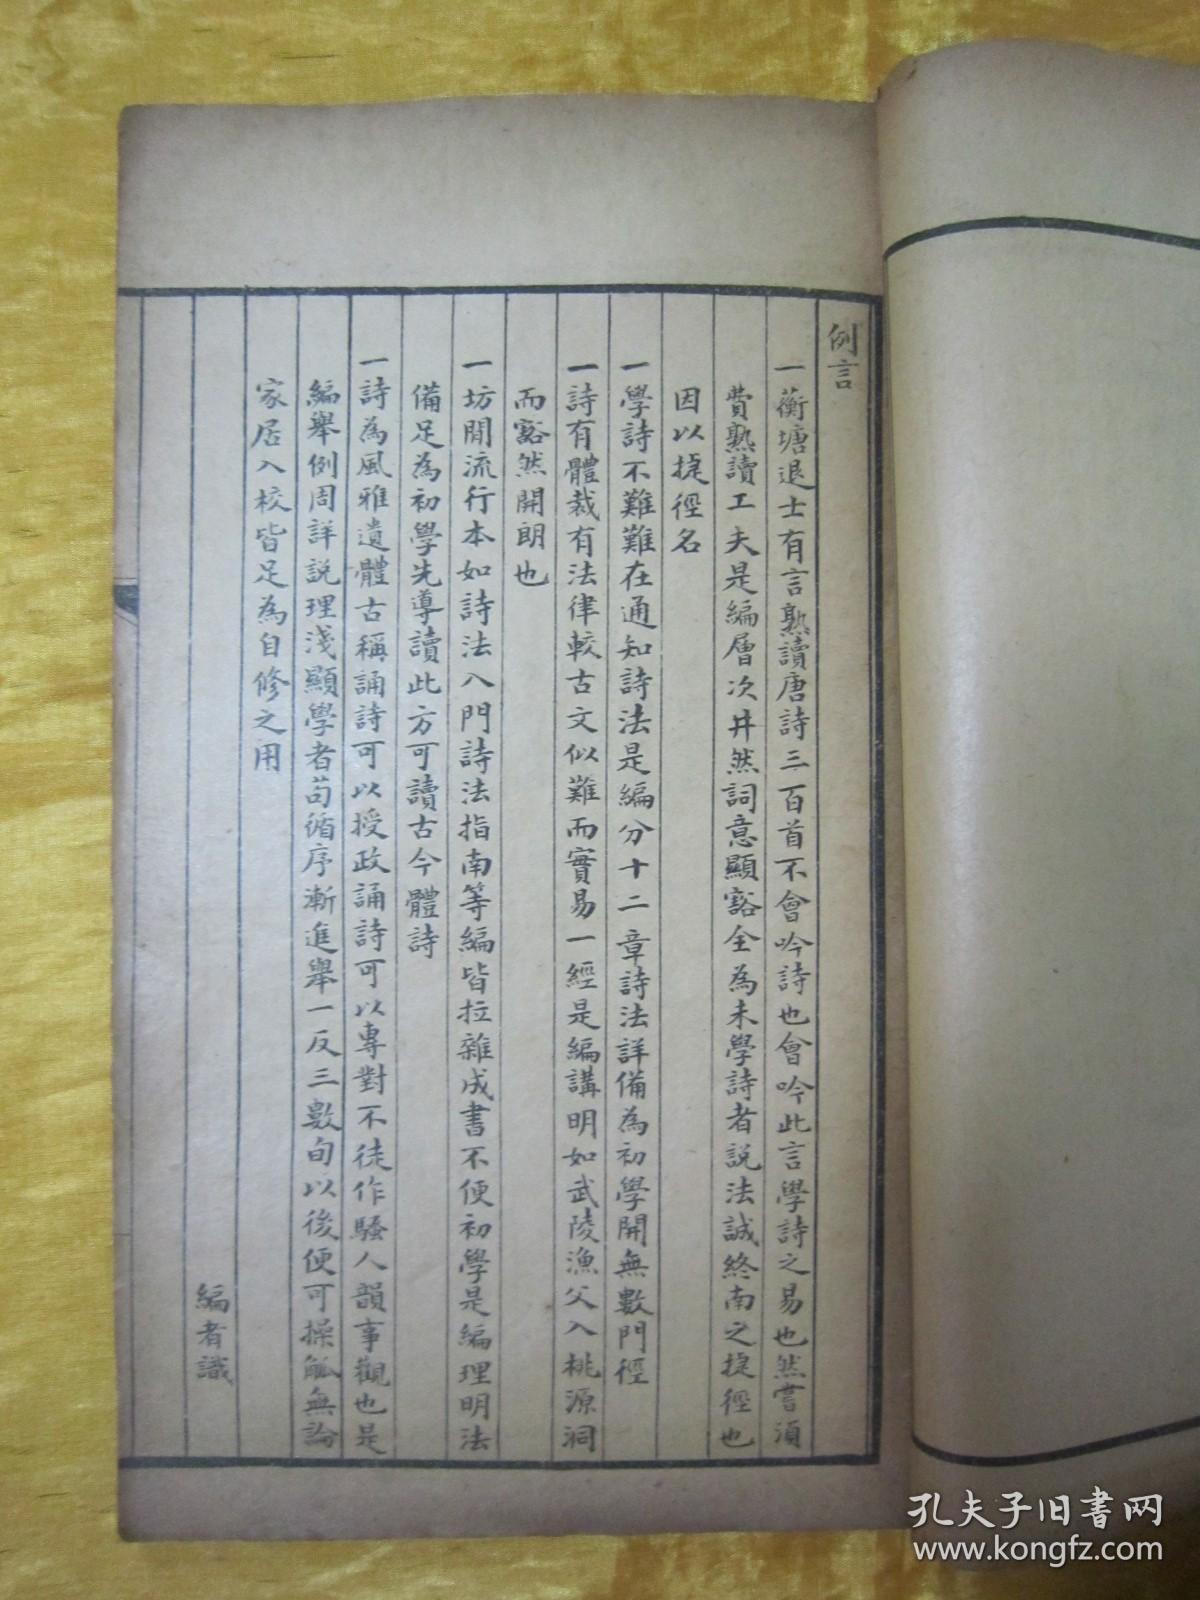 例言
一蘅塘退士有言熟讀唐詩三百首不會吟詩也會吟此言學詩之易也然嘗須
費熟讀工夫是編層次井然詞意顯豁全為未學詩者說法誠終南之捷徑也
因以捷徑名
一學詩不難難在通知詩法是編分十二章詩法詳備為初學開無數門徑
一詩有體裁有法律較古文似難而實易一經是編講明如武陵漁父入桃源洞
而豁然開朗也
一坊間流行本如詩法入門詩法指南等編皆拉雜成書不便初學是編理明法
備足為初學先導讀此方可讀古今體詩
一詩為風雅遺體古稱誦詩可以授政誦詩可以專對不徒作騷人韻事觀也是
編舉例周詳說理淺顯學者苟循序漸進舉一反三數旬以後便可操觚無論
家居入校皆足為自修之用
編者識
孔夫子旧书网
www.kongfz.com